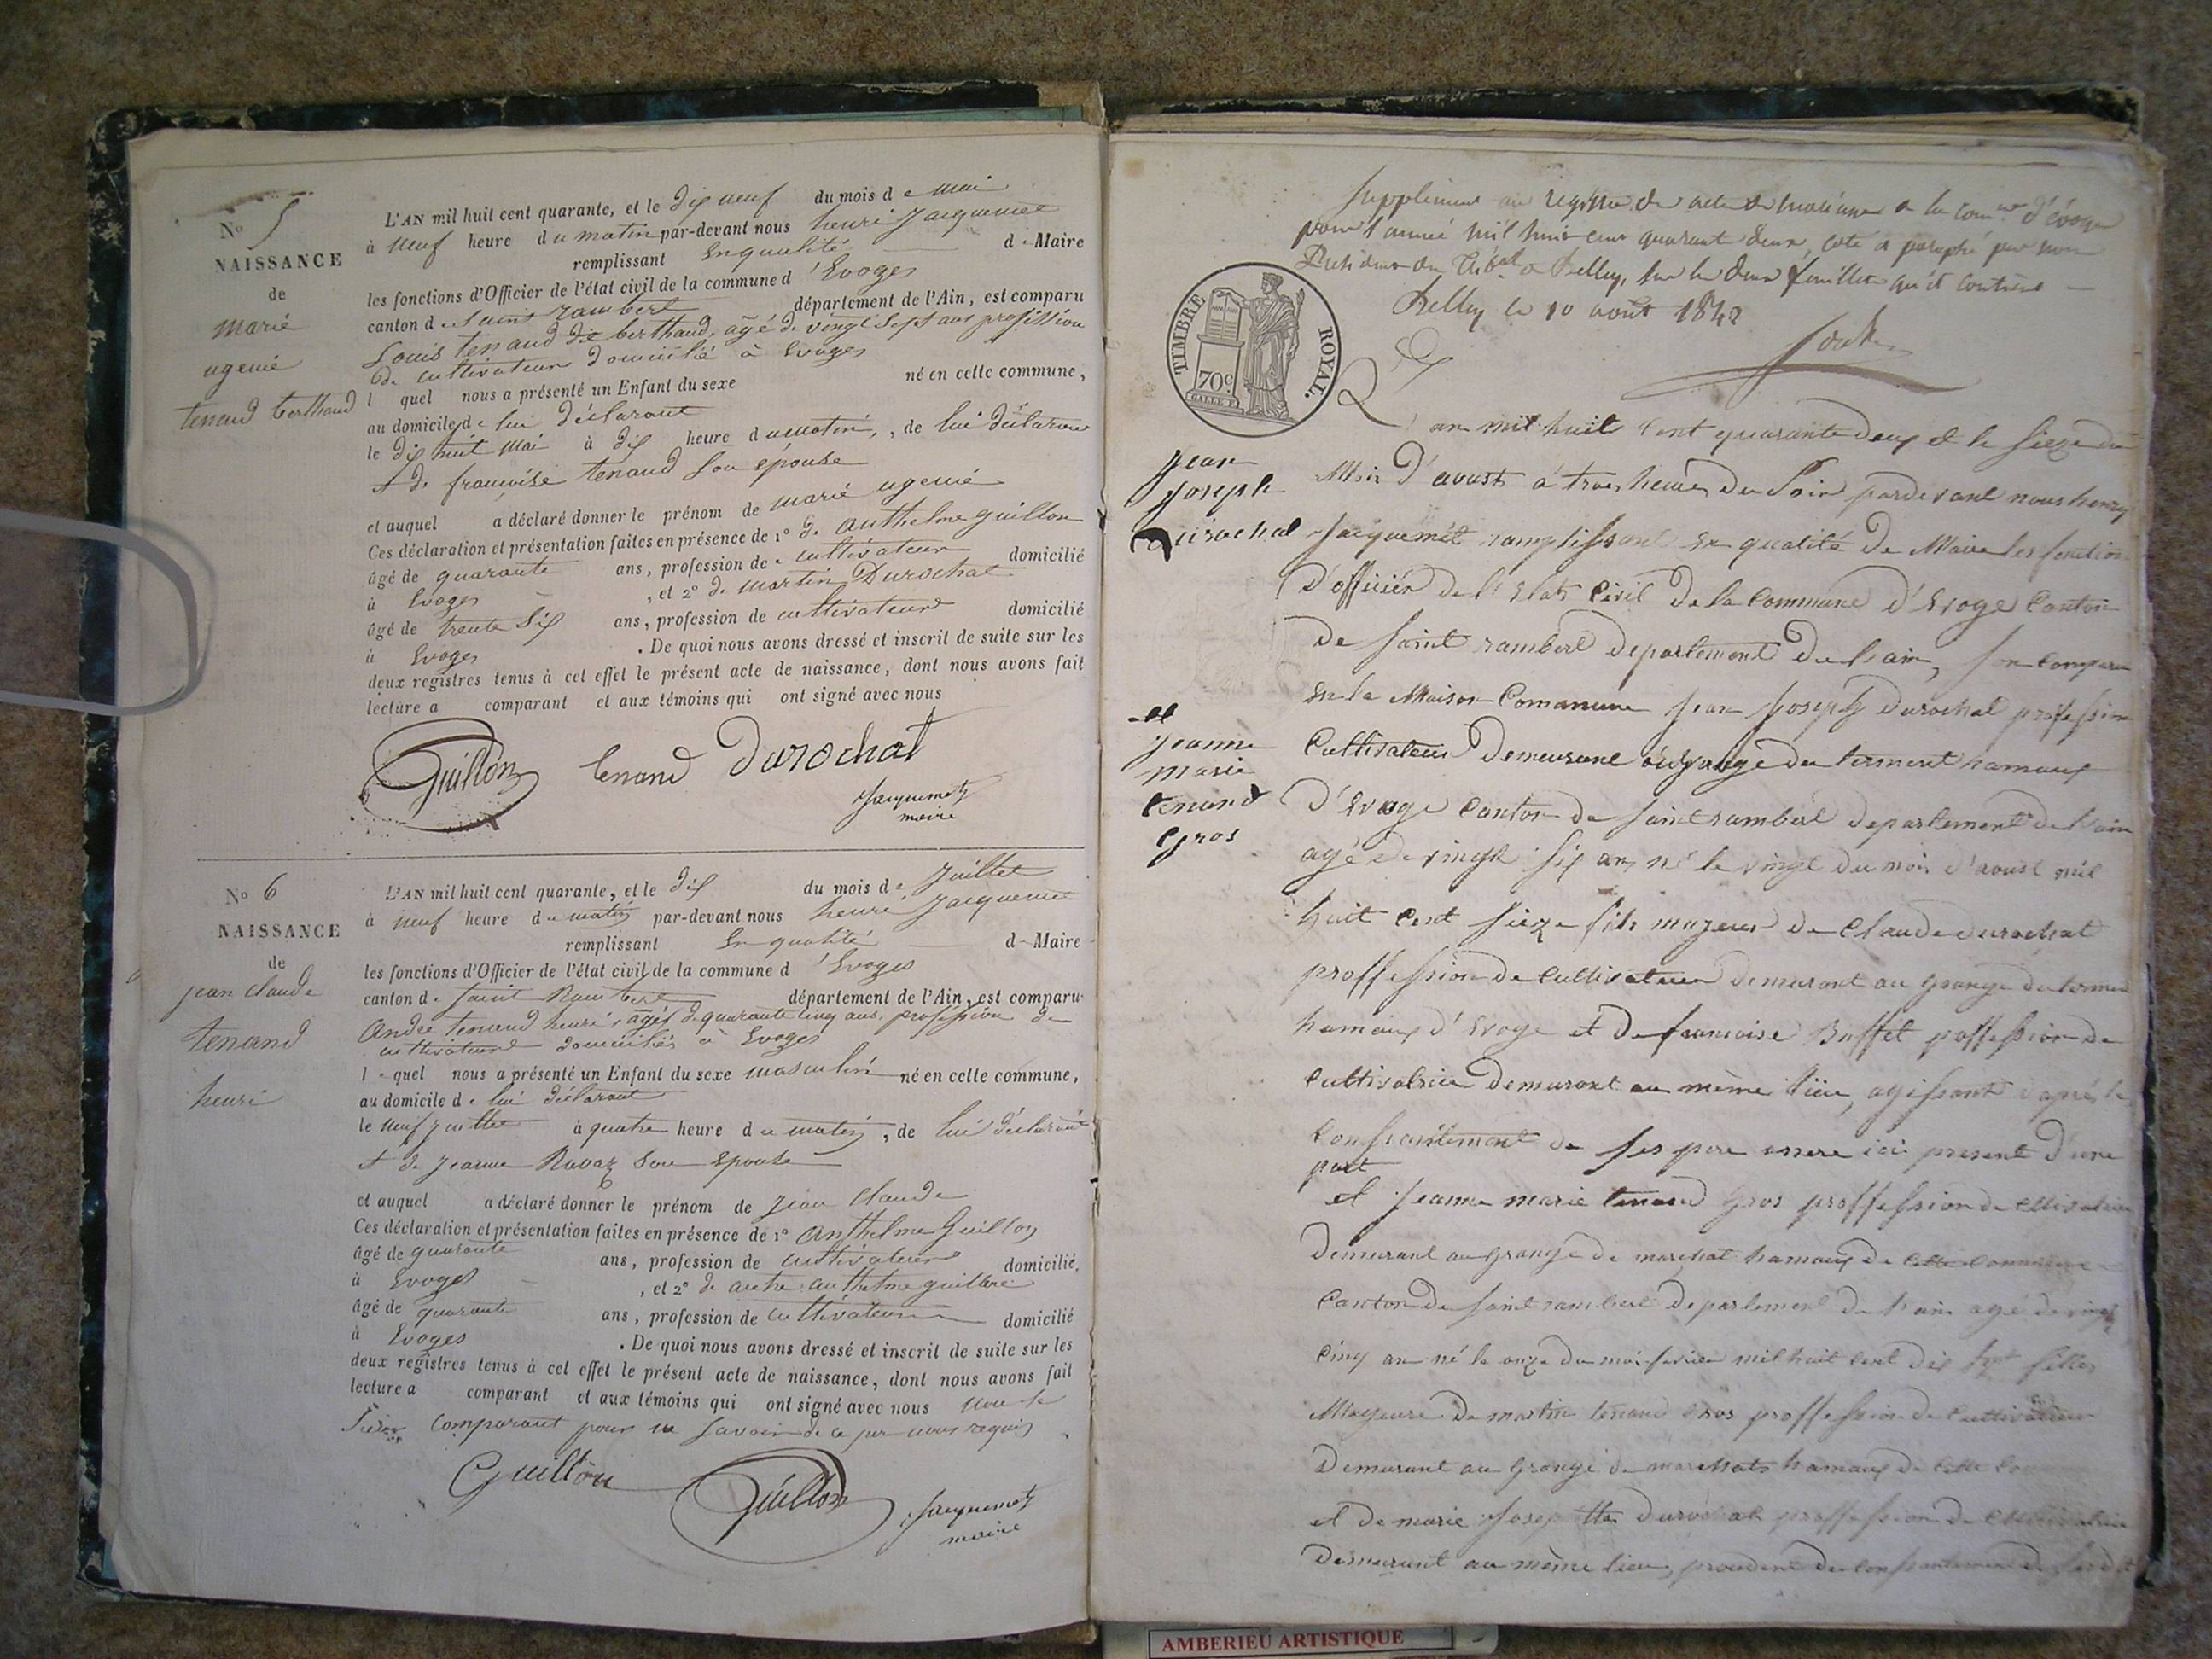 No 5
NAISSANCE
de
marie
ugenié
tenand berthaud
L'AN mil huit cent quarante, et le dix neuf du mois de mai
à neuf heure du matin par-devant nous henri Jacquemet
remplissant En qualité de Maire
les fonctions d'Officier de l'état civil de la commune d'Evoges
canton de Saint rambert département de l'Ain, est comparu
Louis tenand dit berthaud, agé de vingt Sept ans profission
de cultivateur domicilié à Evoges
l quel nous a présenté un Enfant du sexe né en cette commune,
au domicile de lui déclarant
le dix huit mai à dix heure du matin, de lui déclarant
et de françoise tenand son épouse
et auquel a déclaré donner le prénom de marie ugenié
Ces déclaration et présentation faites en présence de 1º de anthelme guillon
âgé de quarante ans, profession de cultivateur domicilié
à Evoges , et 2º de martin Durochat
âgé de trente Six ans, profession de cultivateur domicilié
à Evoges . De quoi nous avons dressé et inscrit de suite sur les
deux registres tenus à cet effet le présent acte de naissance, dont nous avons fait
lecture a comparant et aux témoins qui ont signé avec nous
Guillon tenand Durochat
Jacquemet
maire
No 6
NAISSANCE
de
jean claude
tenand
henri
L'AN mil huit cent quarante, et le dix du mois de Juillet
à neuf heure du matin par-devant nous henri Jacquemet
remplissant En qualité de Maire
les fonctions d'Officier de l'état civil de la commune d'Evoges
canton de Saint Rambert département de l'Ain, est comparu
André tenand henri, agé de quarante cinq ans, profession de
cultivateur domicilié à Evoges
le quel nous a présenté un Enfant du sexe masculin né en cette commune,
au domicile de lui déclarant
le neuf juillet à quatre heure du matin, de lui déclarant
et de Jeanne Ravaz son Epouse
et auquel a déclaré donner le prénom de Jean Claude
Ces déclaration et présentation faites en présence de 1º anthelme Guillon
âgé de quarante ans, profession de cultivateur domicilié,
à Evoges , et 2º de autre anthelme guillon
âgé de quarante ans, profession de cultivateur domicilié
à Evoges . De quoi nous avons dressé et inscrit de suite sur les
deux registres tenus à cet effet le présent acte de naissance, dont nous avons fait
lecture a comparant et aux témoins qui ont signé avec nous non le
comparant pour ne savoir de ce par nous requis
Guillon Guillon Jacquemet
maire
Supplément au registre de actes de mariages de la comne d'évoges
pour l'année mil huit cent quarante deux, coté et paraphé par nous
Président du Tribal de Belley, sur le deux feuillets qu'il contient
Belley le 10 août 1842
TIMBRE ROYAL.
70c.
L'an mil huit cent quarante deux et le sieze du
Mois d'avoust à trois heures du Soir pardevant nous henry
Jacquemet ramplissant En qualité de Maire les fonction
D'officier de l'Etat Civil De la Commune d'Evoge Canton
De saint rambert Departement De lain, son Comparu
En la Maison Comunne Jean Joseph Durochat proffession
Cultivateur Demeurant hamaux
D'Evoge Canton de saint rambert Departement de l'ain
agé de vingt six ans né le vingt du mois d'avoust mil
huit cent sieze fils majeur de Claude durochat
proffession de Cultivateur Demeurant au grange
hamaux d'Evoge et De francoise Buffet proffession de
Cultivatrice Demeurant au même liëu, agissant
Consentement de ses pere mere ici present D'une
part
et Jeanne marie tenand Gros proffession de
Demeurant au grange de marchat hamaux de Cette Commune
Canton de saint rambert departement de lain agé de vingt
Cinq an né le onze du mois mil huit cent dix sept filles
Majeure De martin tenand Gros proffession de Cultivateur
Demeurant au Grange de hamaux de Cette
et De marie Josephtte durochat proffession de
Demeurant au même lieu,
Jean
Joseph
Durochat
et
jeanne
marie
tenand
Gros
AMBERIEU ARTISTIQUE